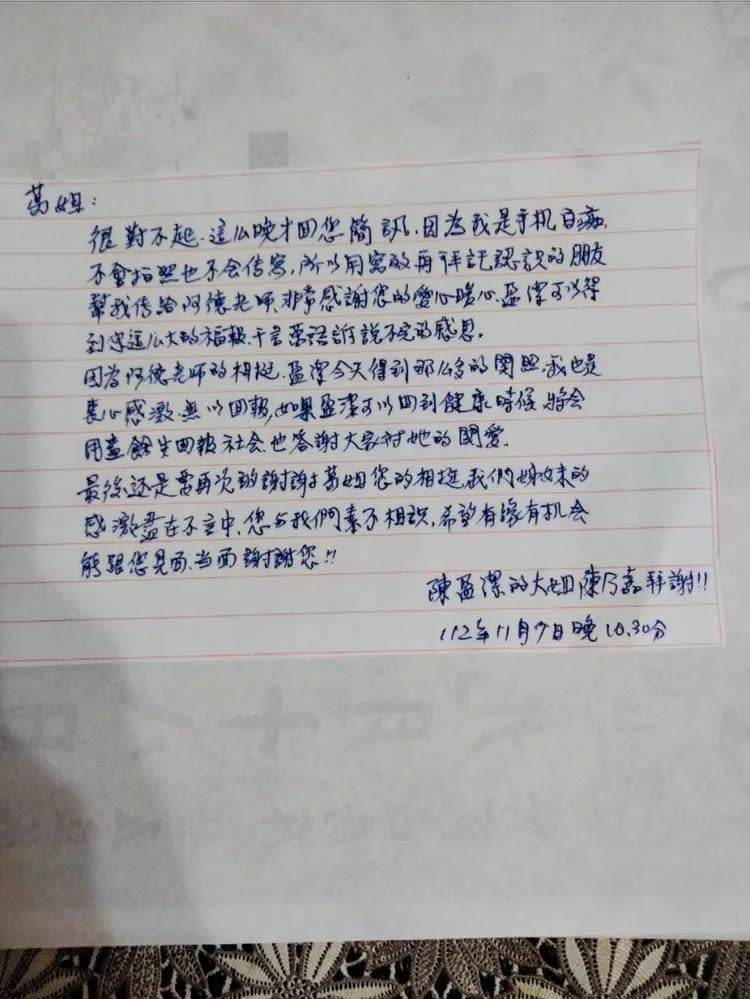 葛姐:
很對不起.這么晚才回您簡訊,因為我是手机白痴,
不會拍照也不会传寫,所以用寫的再拜託認識的朋友
幫我传給阿德老师.非常感謝您的愛心暖心.盈潔可以得
到您這么大的福報.千言萬語訴說不完的感恩.
因為阿德老师的相挺.盈潔今天得到那么多的関照.我也是
衷心感激.無以回報,如果盈潔可以回到健康時候.將会
用盡餘生回報社会.也答謝大家对她的関愛.
最後.还是要再次的謝謝葛姐您的相挺,我們姊妹的
感激盡在不言中.您与我們素不相識,希望有緣有机会
能跟您見面.当面謝謝您!!
陳盈潔的大姐陳乃嘉拜謝!!
112年11月 日晚10.30分